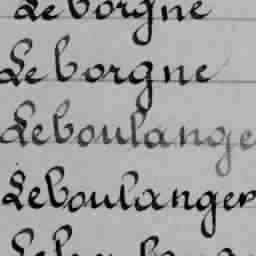 Leborgne
Leborgne
Leboulange
Leboulanger